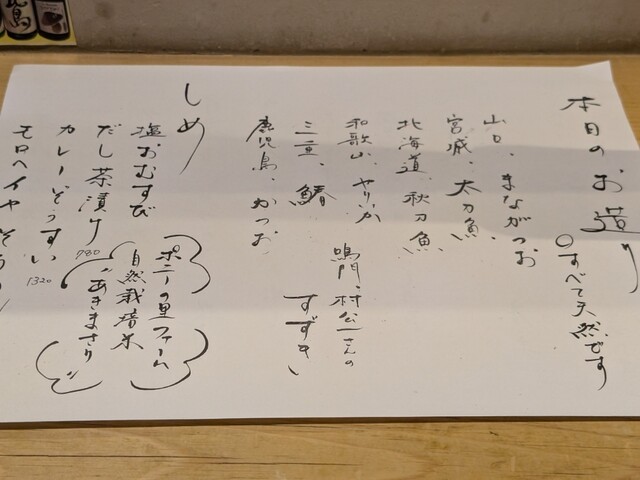 本日のお造り
○すべて天然です
山口、まながつお
宮城、太刀魚
北海道、秋刀魚
和歌山、やりいか
鳴門、村公一さんの
すずき
三重、鰆
鹿児島、かつお
しめ
塩おむすび
だし茶漬け
780
カレーぞうすい
1320
モロヘイヤぞう
ポニーの里ファーム
自然栽培米
"あきまさり"